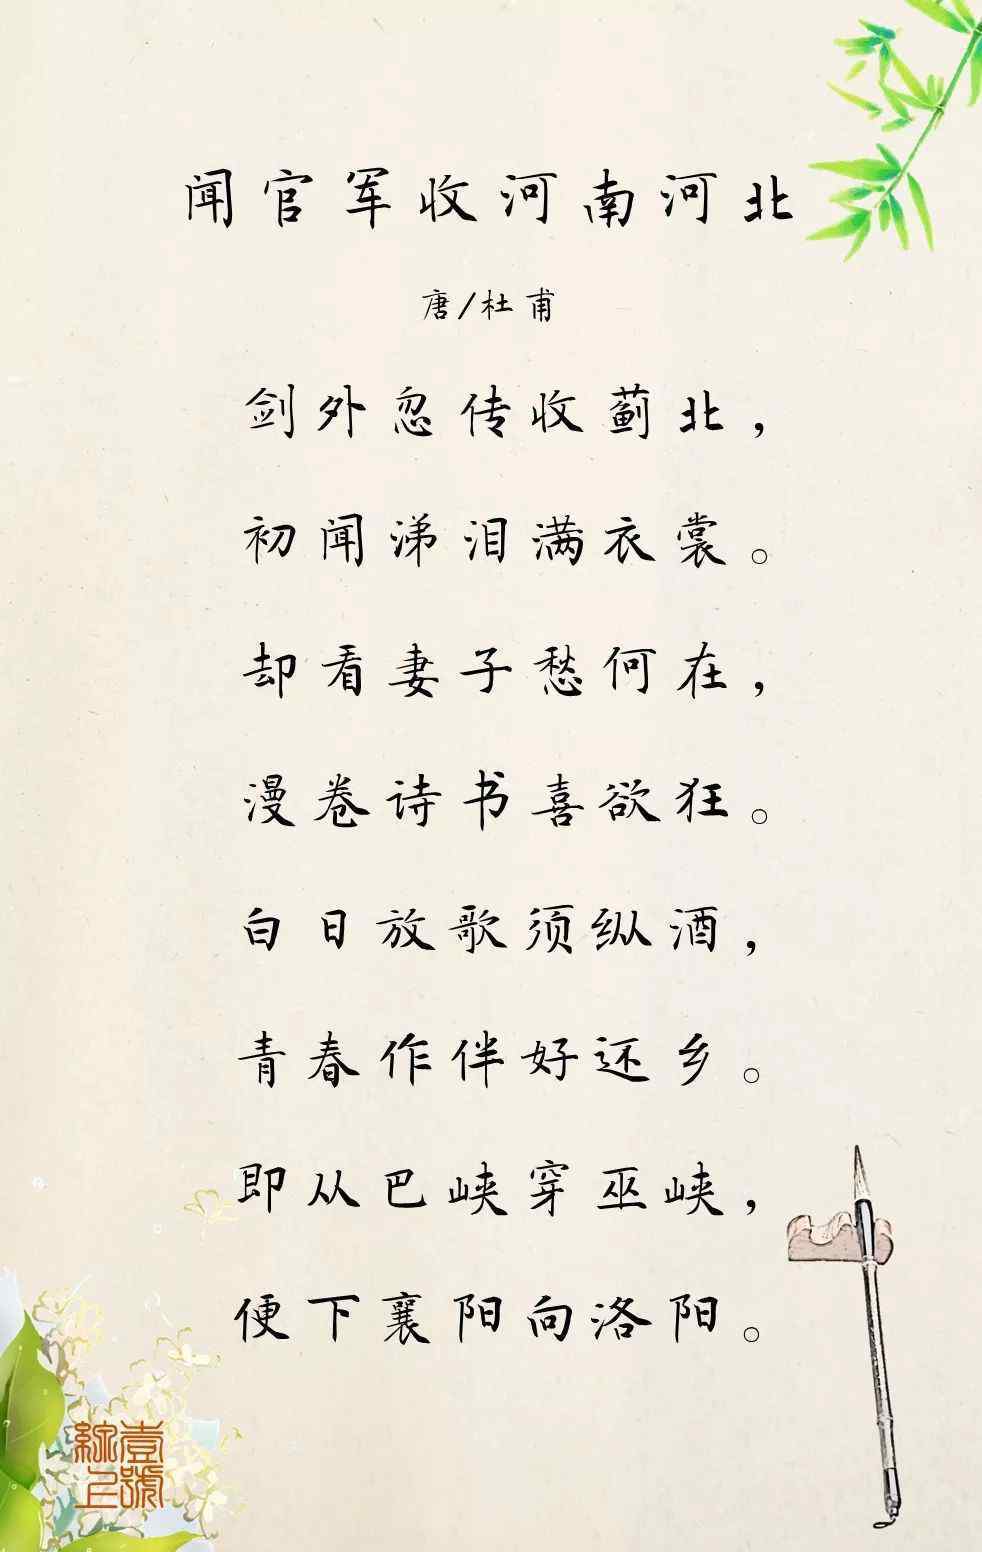 闻官军收河南河北
唐/杜甫
剑外忽传收蓟北，
初闻涕泪满衣裳。
却看妻子愁何在，
漫卷诗书喜欲狂。
白日放歌须纵酒，
青春作伴好还乡。
即从巴峡穿巫峡，
便下襄阳向洛阳。